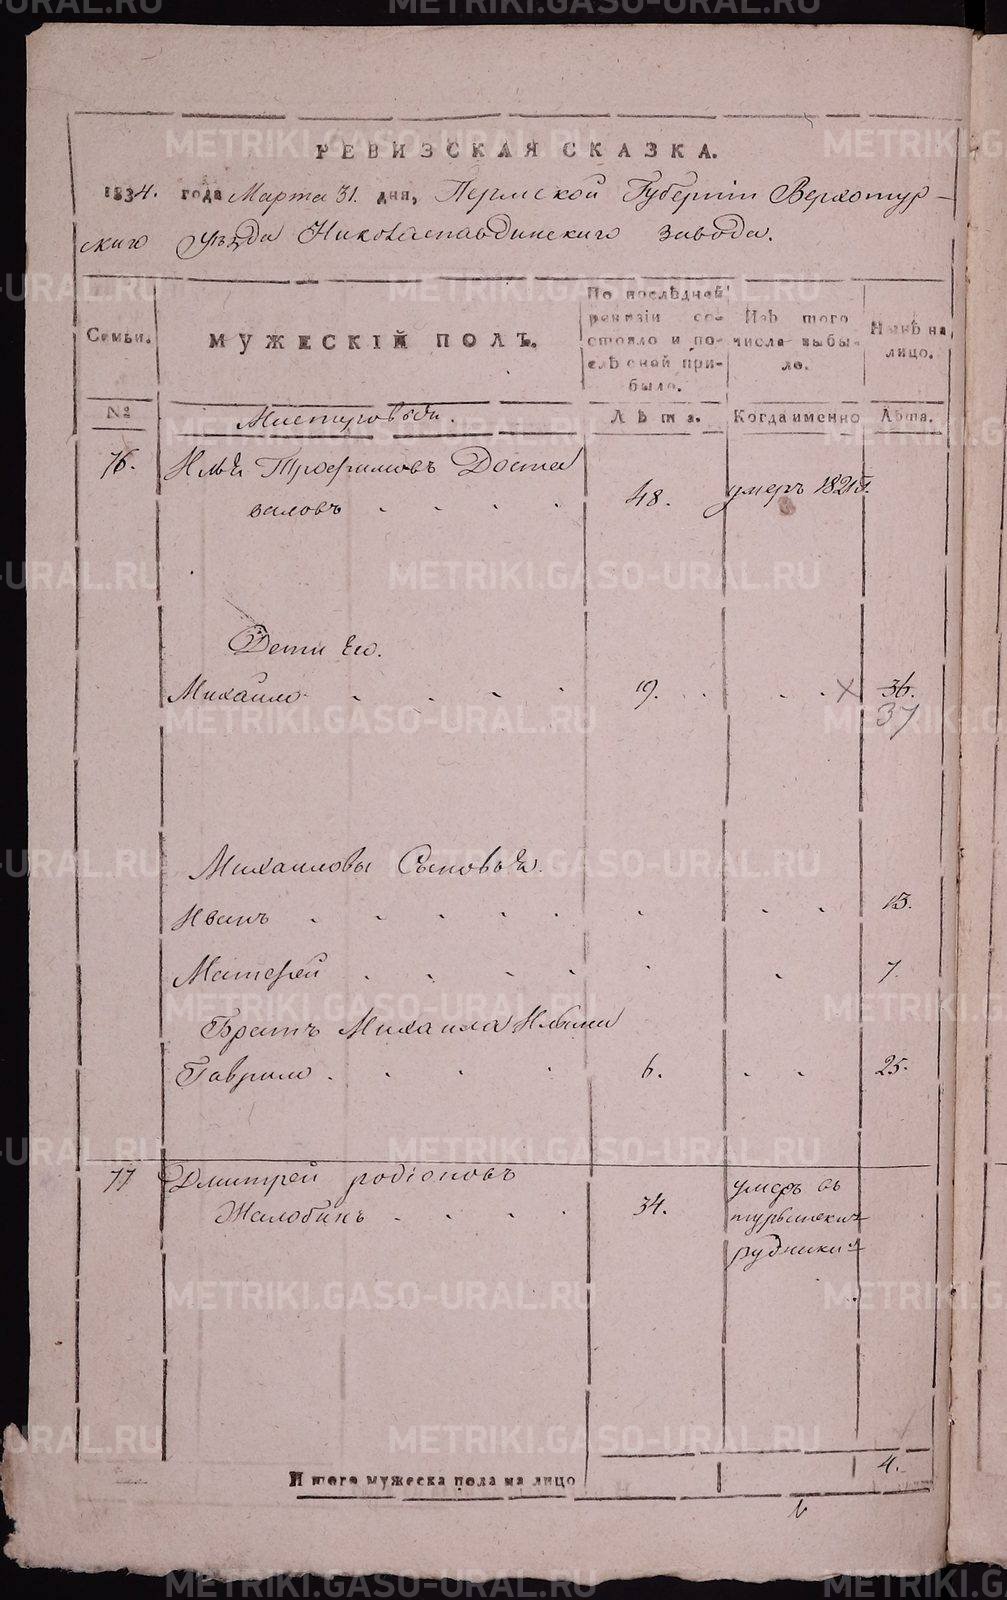 METRIKI.GASO-URAL.RU
РЕВИЗСКАЯ СКАЗКА.
1834. года Марта 31. дня, Пермской Губерніи Верхотур-
скаго уѣзда Николаепавдинскаго завода.
Семьи.
МУЖЕСКІЙ ПОЛЪ.
По послѣдней ревизіи состояло и послѣ оной прибыло.
Изъ того числа выбыло.
Нынѣ на лицо.
№
Мастеровые.
Лѣта.
Когда именно
Лѣта.
76. Илья Трофимовъ Доста
валовъ 48. умеръ
Дети Его.
Михайло 19. 36.
37
Михаиловы Сыновья.
Иванъ 13.
Матфей 7.
Братъ Михаила Ильина
Гаврило 6. 25.
77 Дмитрей родіоновъ
Жалобинъ 34. умеръ въ
турьинскихъ
рудникахъ
Итого мужеска пола на лицо 4.